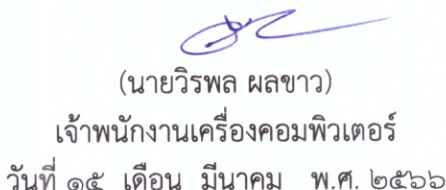 (นายวิรพล ผลขาว)
เจ้าพนักงานเครื่องคอมพิวเตอร์
วันที่ ๑๕ เดือน มีนาคม พ.ศ. ๒๕๖๖